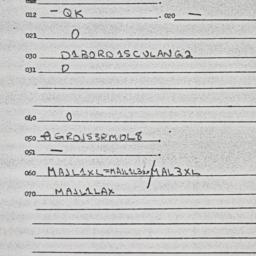 012 - QK . 020 -
021 0
030 D1BORD1SCVLANG2
031 0
040 0
050 AGROJS3RMDL8.
051 -
060 MAJL1XL=MAJL1L3XL/MAL3XL
070 MAJL1LAX